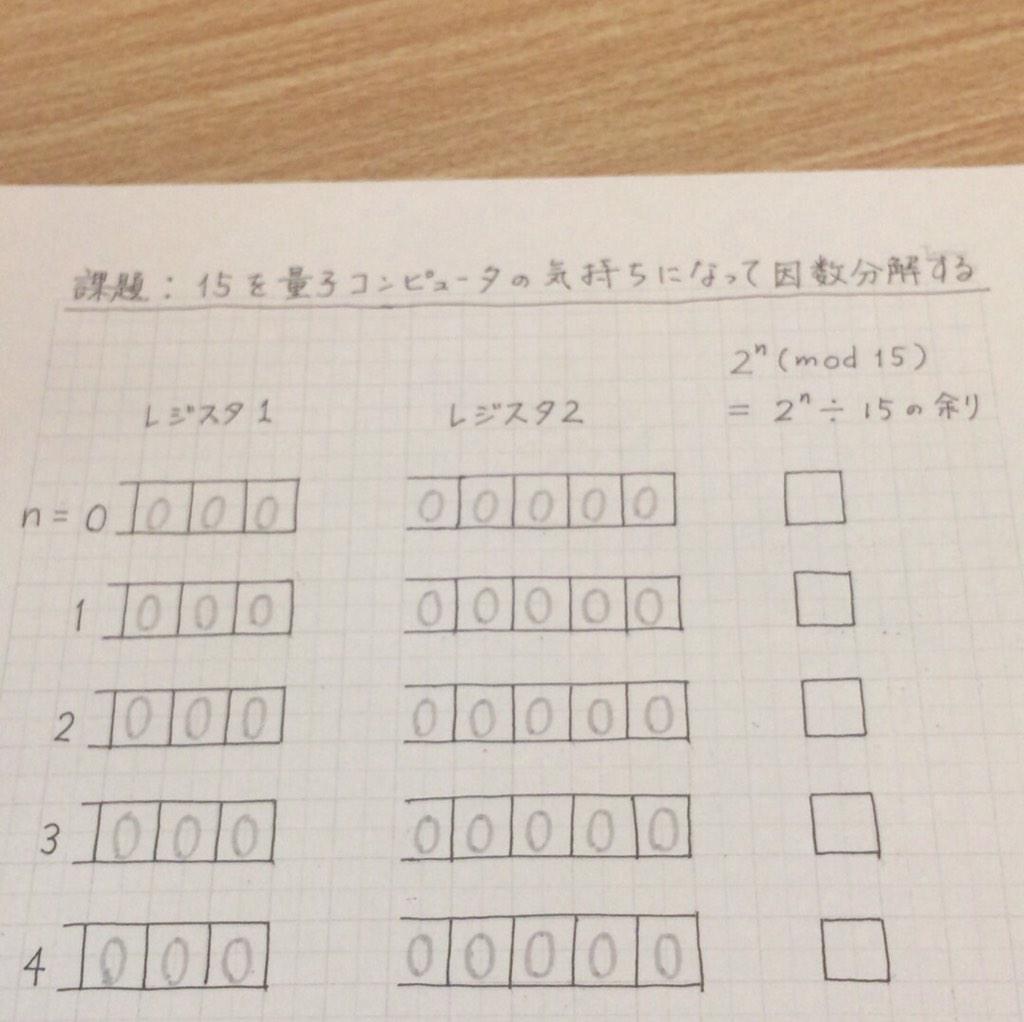 課題：15を量子コンピュータの気持ちになって因数分解する
2ⁿ (mod 15)
レジスタ1 レジスタ2 = 2ⁿ ÷ 15 の余り
n = 0 0 0 0 0 0 0 0 0
1 0 0 0 0 0 0 0 0
2 0 0 0 0 0 0 0 0
3 0 0 0 0 0 0 0 0
4 0 0 0 0 0 0 0 0